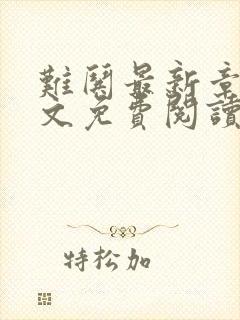 難關最新章
文免費閱讀
特松加